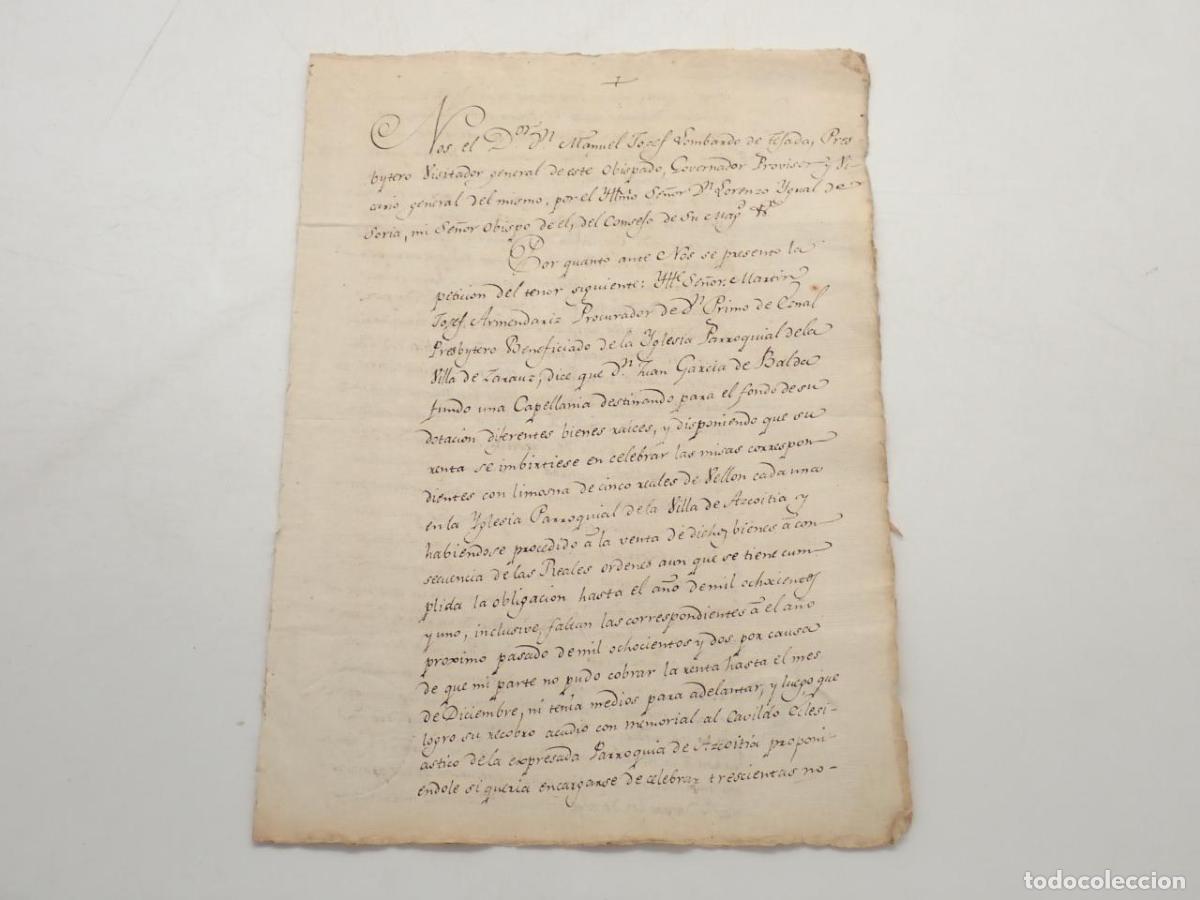 +
Nos el D.or D.n Manuel Josef Lombardo de Tejada, Pres-
bytero Visitador general de este Obispado, Governador Provisor y Vi-
cario general del mismo, por el Yllmo Señor D.n Lorenzo Ygual de
Soria, mi Señor Obispo de el, del Consejo de Su Mag.d &.a
Por quanto ante Nos se presento la
peticion del tenor siguiente: Yll.e Señor: Martin
Josef Armendariz Procurador de D.n Primo de
Presbytero Beneficiado de la Yglesia Parroquial dela
Villa de Zarauz, dice que D.n Juan Garcia de Balda
fundo una Capellania destinando para el fondo de su
dotacion diferentes bienes raices, y disponiendo que su
renta se imbirtiese en celebrar las misas correspon-
dientes con limosna de cinco reales de Vellon cada una
en la Yglesia Parroquial de la Villa de Azcoitia y
habiendose procedido â la venta de dichos bienes â con
secuencia de las Reales ordenes aun que se tiene cum
plida la obligacion hasta el año de mil ochocientos
y uno, inclusive, faltan las correspondientes â el año
proximo pasado de mil ochocientos y dos por causa
de que mi parte no pudo cobrar la renta hasta el mes
de Diciembre, ni tenia medios para adelantar, y luego que
logro su recobro acudio con memorial al Cavildo Eclesi-
astico de la expresada Parroquia de Azcoitia proponi-
endole si queria encargarse de celebrar trescientas no-
todocoleccion